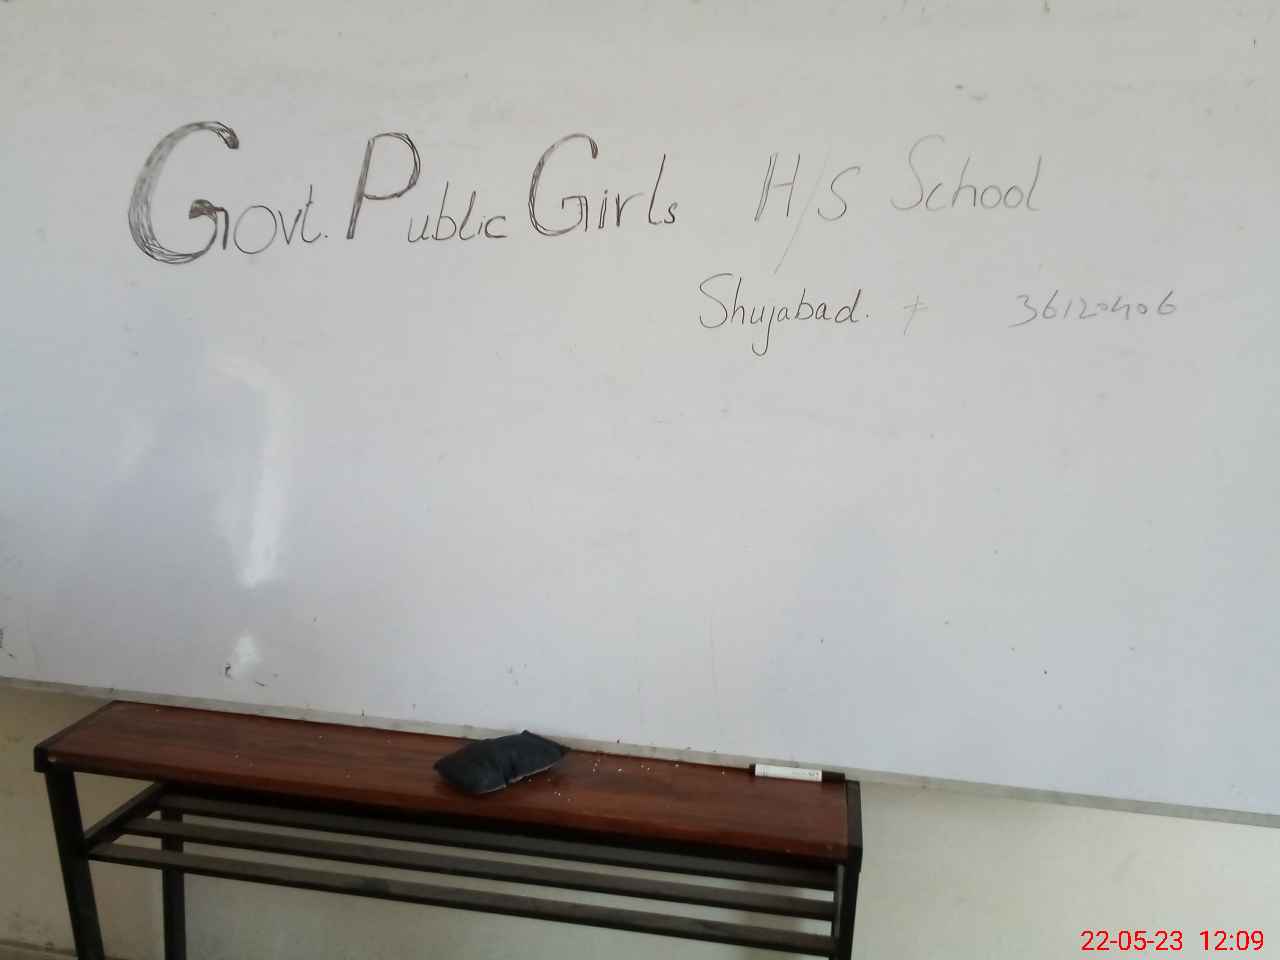 Govt. Public Girls H/S School
Shujabad. 36120406
22-05-23 12:09